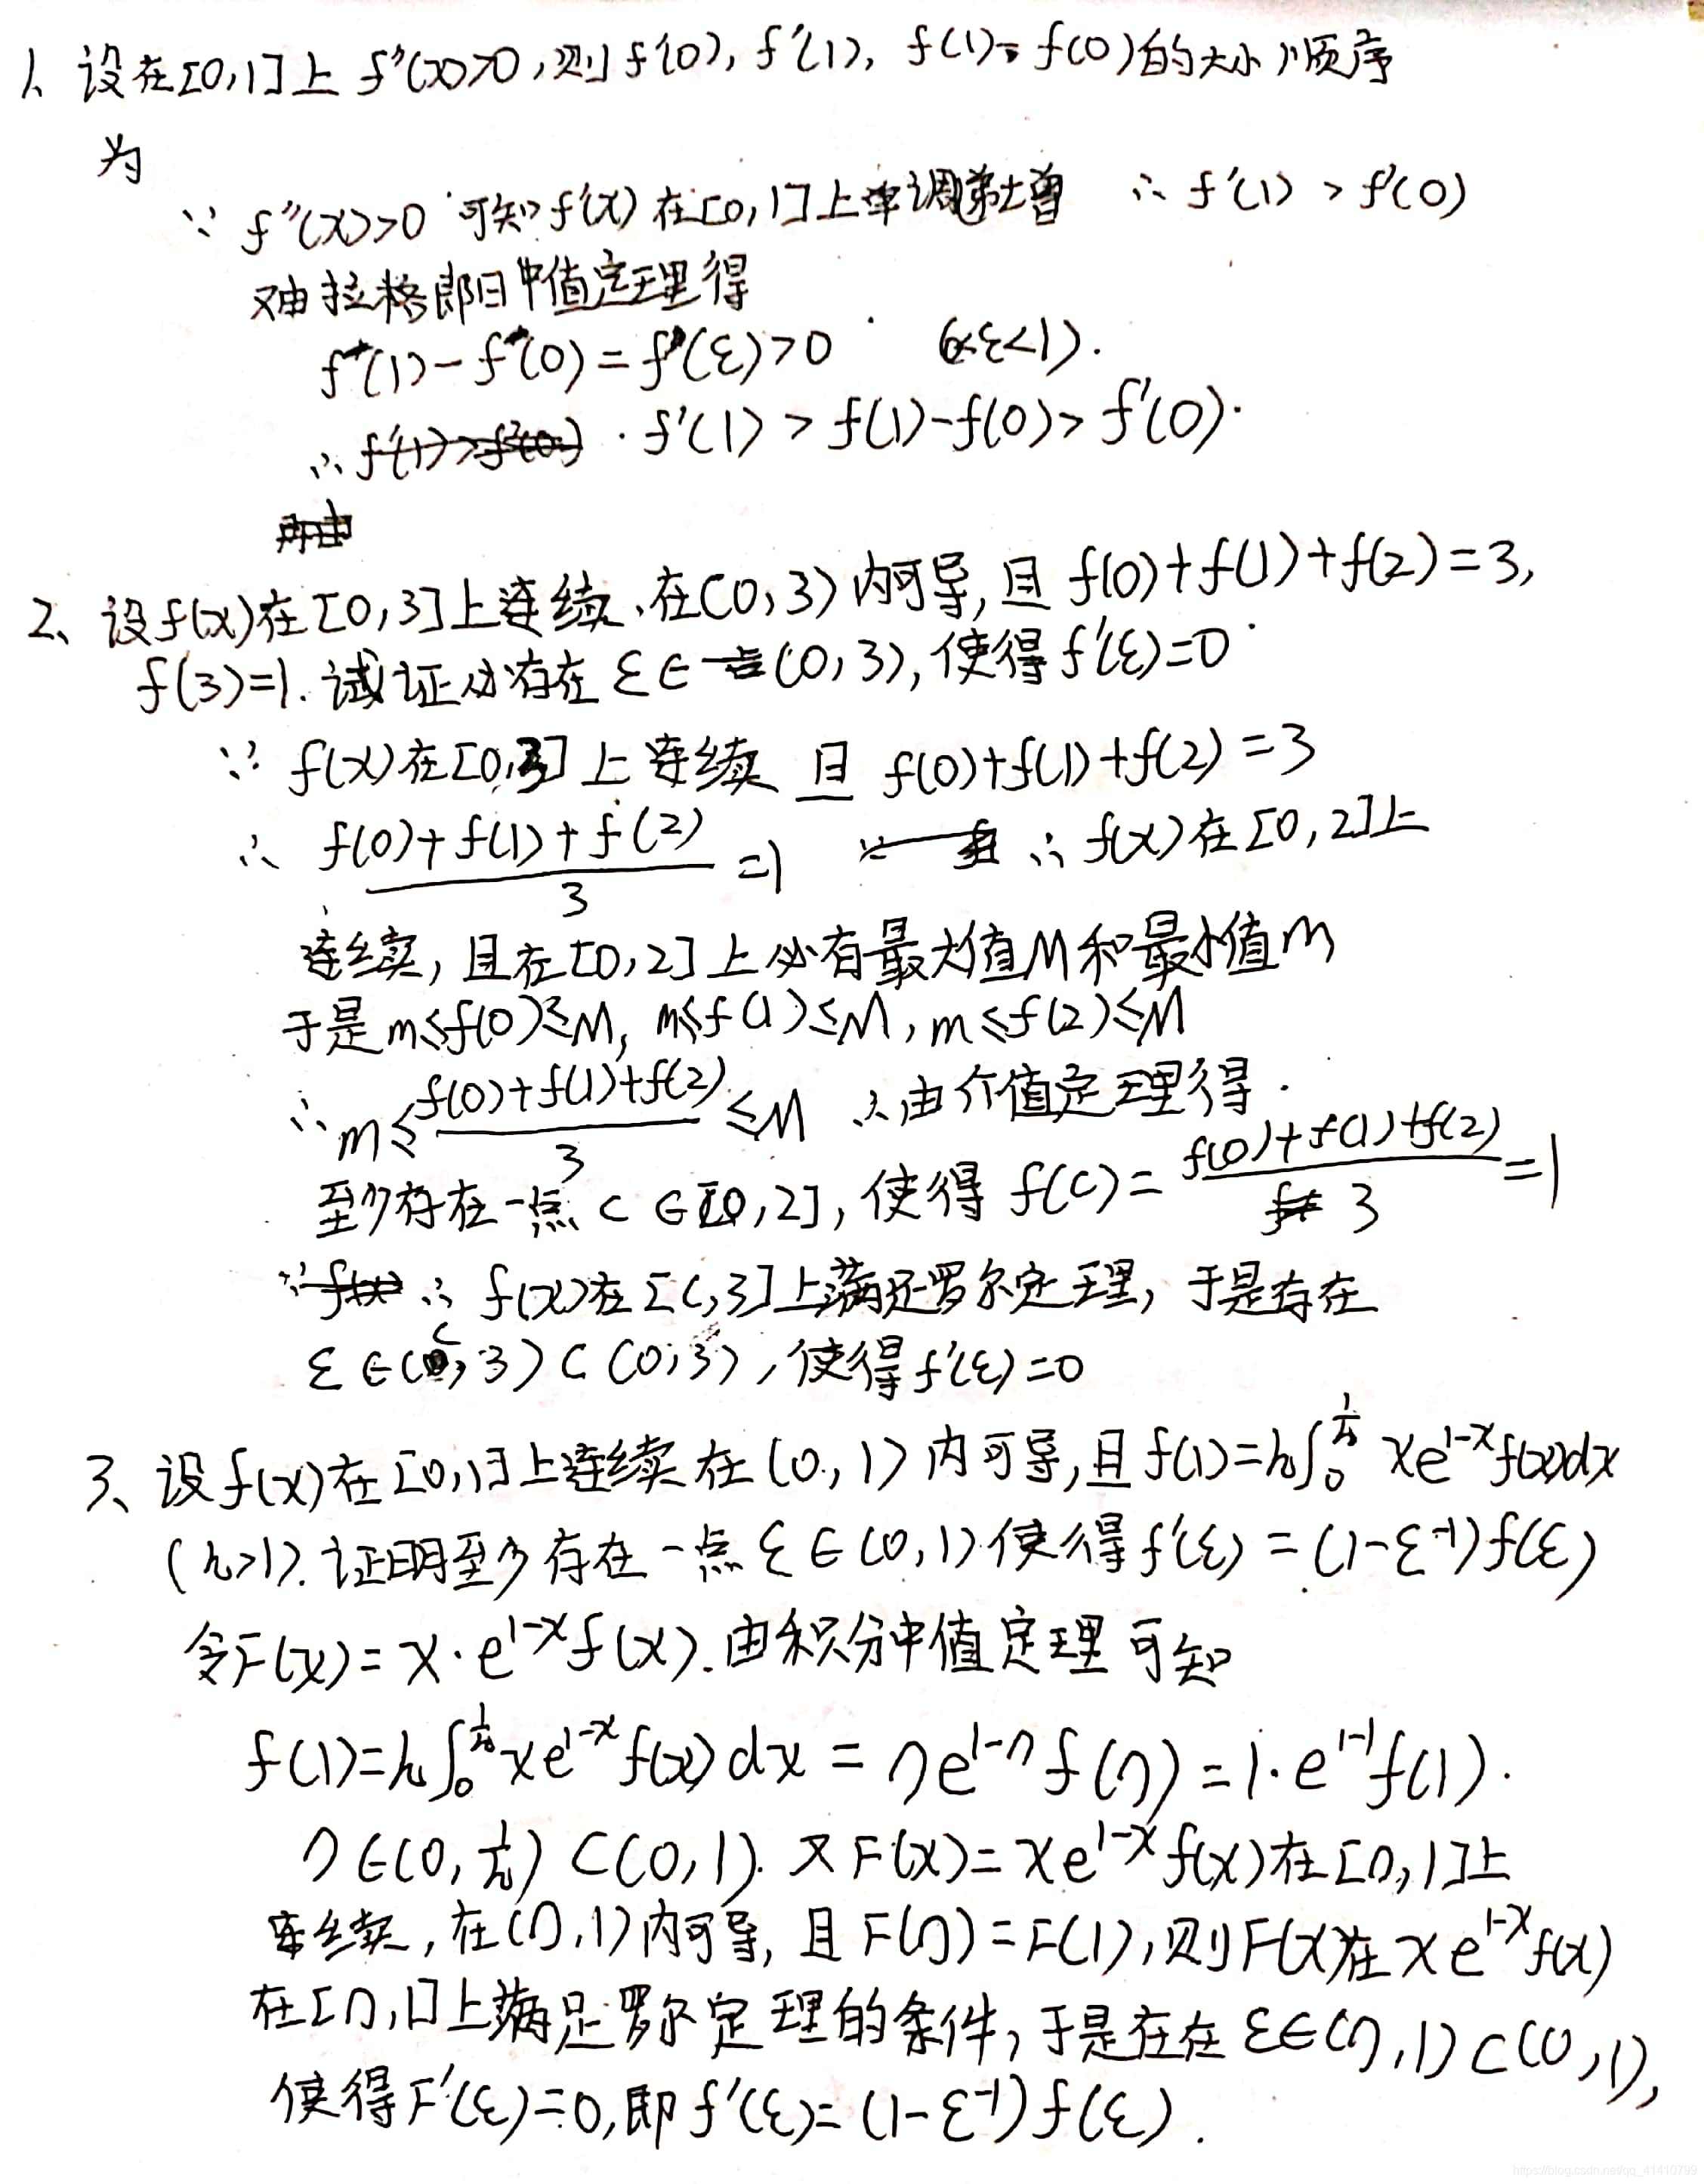 1、设在[0,1]上 f''(x)>0,则 f'(0), f'(1), f(1)-f(0)的大小顺序
为
∵ f''(x)>0 可知 f'(x) 在[0,1]上单调递增 ∴ f'(1) > f'(0)
又由拉格郎日中值定理得
f(1)-f(0)=f'(ε)>0 (0<ε<1).
∴ f'(1) > f(1)-f(0)> f'(0).
2、设f(x)在[0,3]上连续,在(0,3)内可导,且 f(0)+f(1)+f(2)=3,
f(3)=1.试证必存在 ε∈(0,3),使得 f'(ε)=0
∵ f(x)在[0,3]上连续 且 f(0)+f(1)+f(2)=3
∴ (f(0)+f(1)+f(2))/3 =1 ∴ f(x)在[0,2]上
连续,且在[0,2]上必有最大值M和最小值m
于是 m≤f(0)≤M, m≤f(1)≤M, m≤f(2)≤M
∴ m≤(f(0)+f(1)+f(2))/3≤M ∴由介值定理得
至少存在一点 c∈[0,2],使得 f(c)=(f(0)+f(1)+f(2))/3=1
∴ f(x)在[c,3]上满足罗尔定理,于是存在
ε∈(c,3)⊂(0,3),使得f'(ε)=0
3、设f(x)在[0,1]上连续在(0,1)内可导,且f(1)=k∫₀^(1/k) xe^(1-x)f(x)dx
(k>1).证明至少存在一点ε∈(0,1)使得f'(ε)=(1-ε^-1)f(ε)
令F(x)=x·e^(1-x)f(x).由积分中值定理可知
f(1)=k∫₀^(1/k) xe^(1-x)f(x)dx=ηe^(1-η)f(η)=1·e^(1-1)f(1).
η∈(0,1/k)⊂(0,1).又F(x)=xe^(1-x)f(x)在[η,1]上
连续,在(η,1)内可导,且F(η)=F(1),则F(x)在xe^(1-x)f(x)
在[η,1]上满足罗尔定理的条件,于是在在ε∈(η,1)⊂(0,1),
使得F'(ε)=0,即f'(ε)=(1-ε^-1)f(ε).
https://blog.csdn.net/qq_41410799